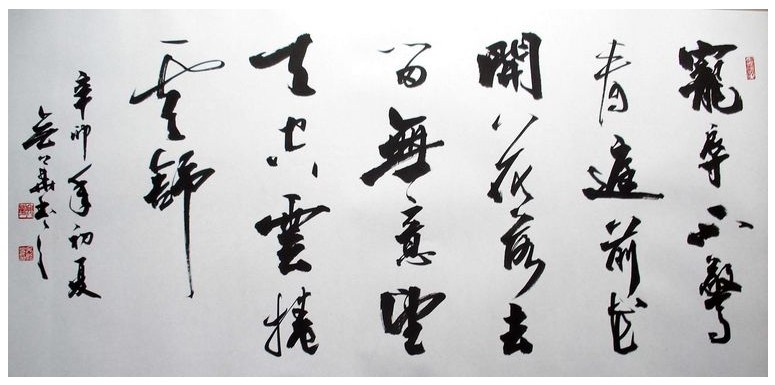 寵辱不驚
看庭前花
開花落去
留無意望
天空雲捲
雲舒
辛卯年初夏
書